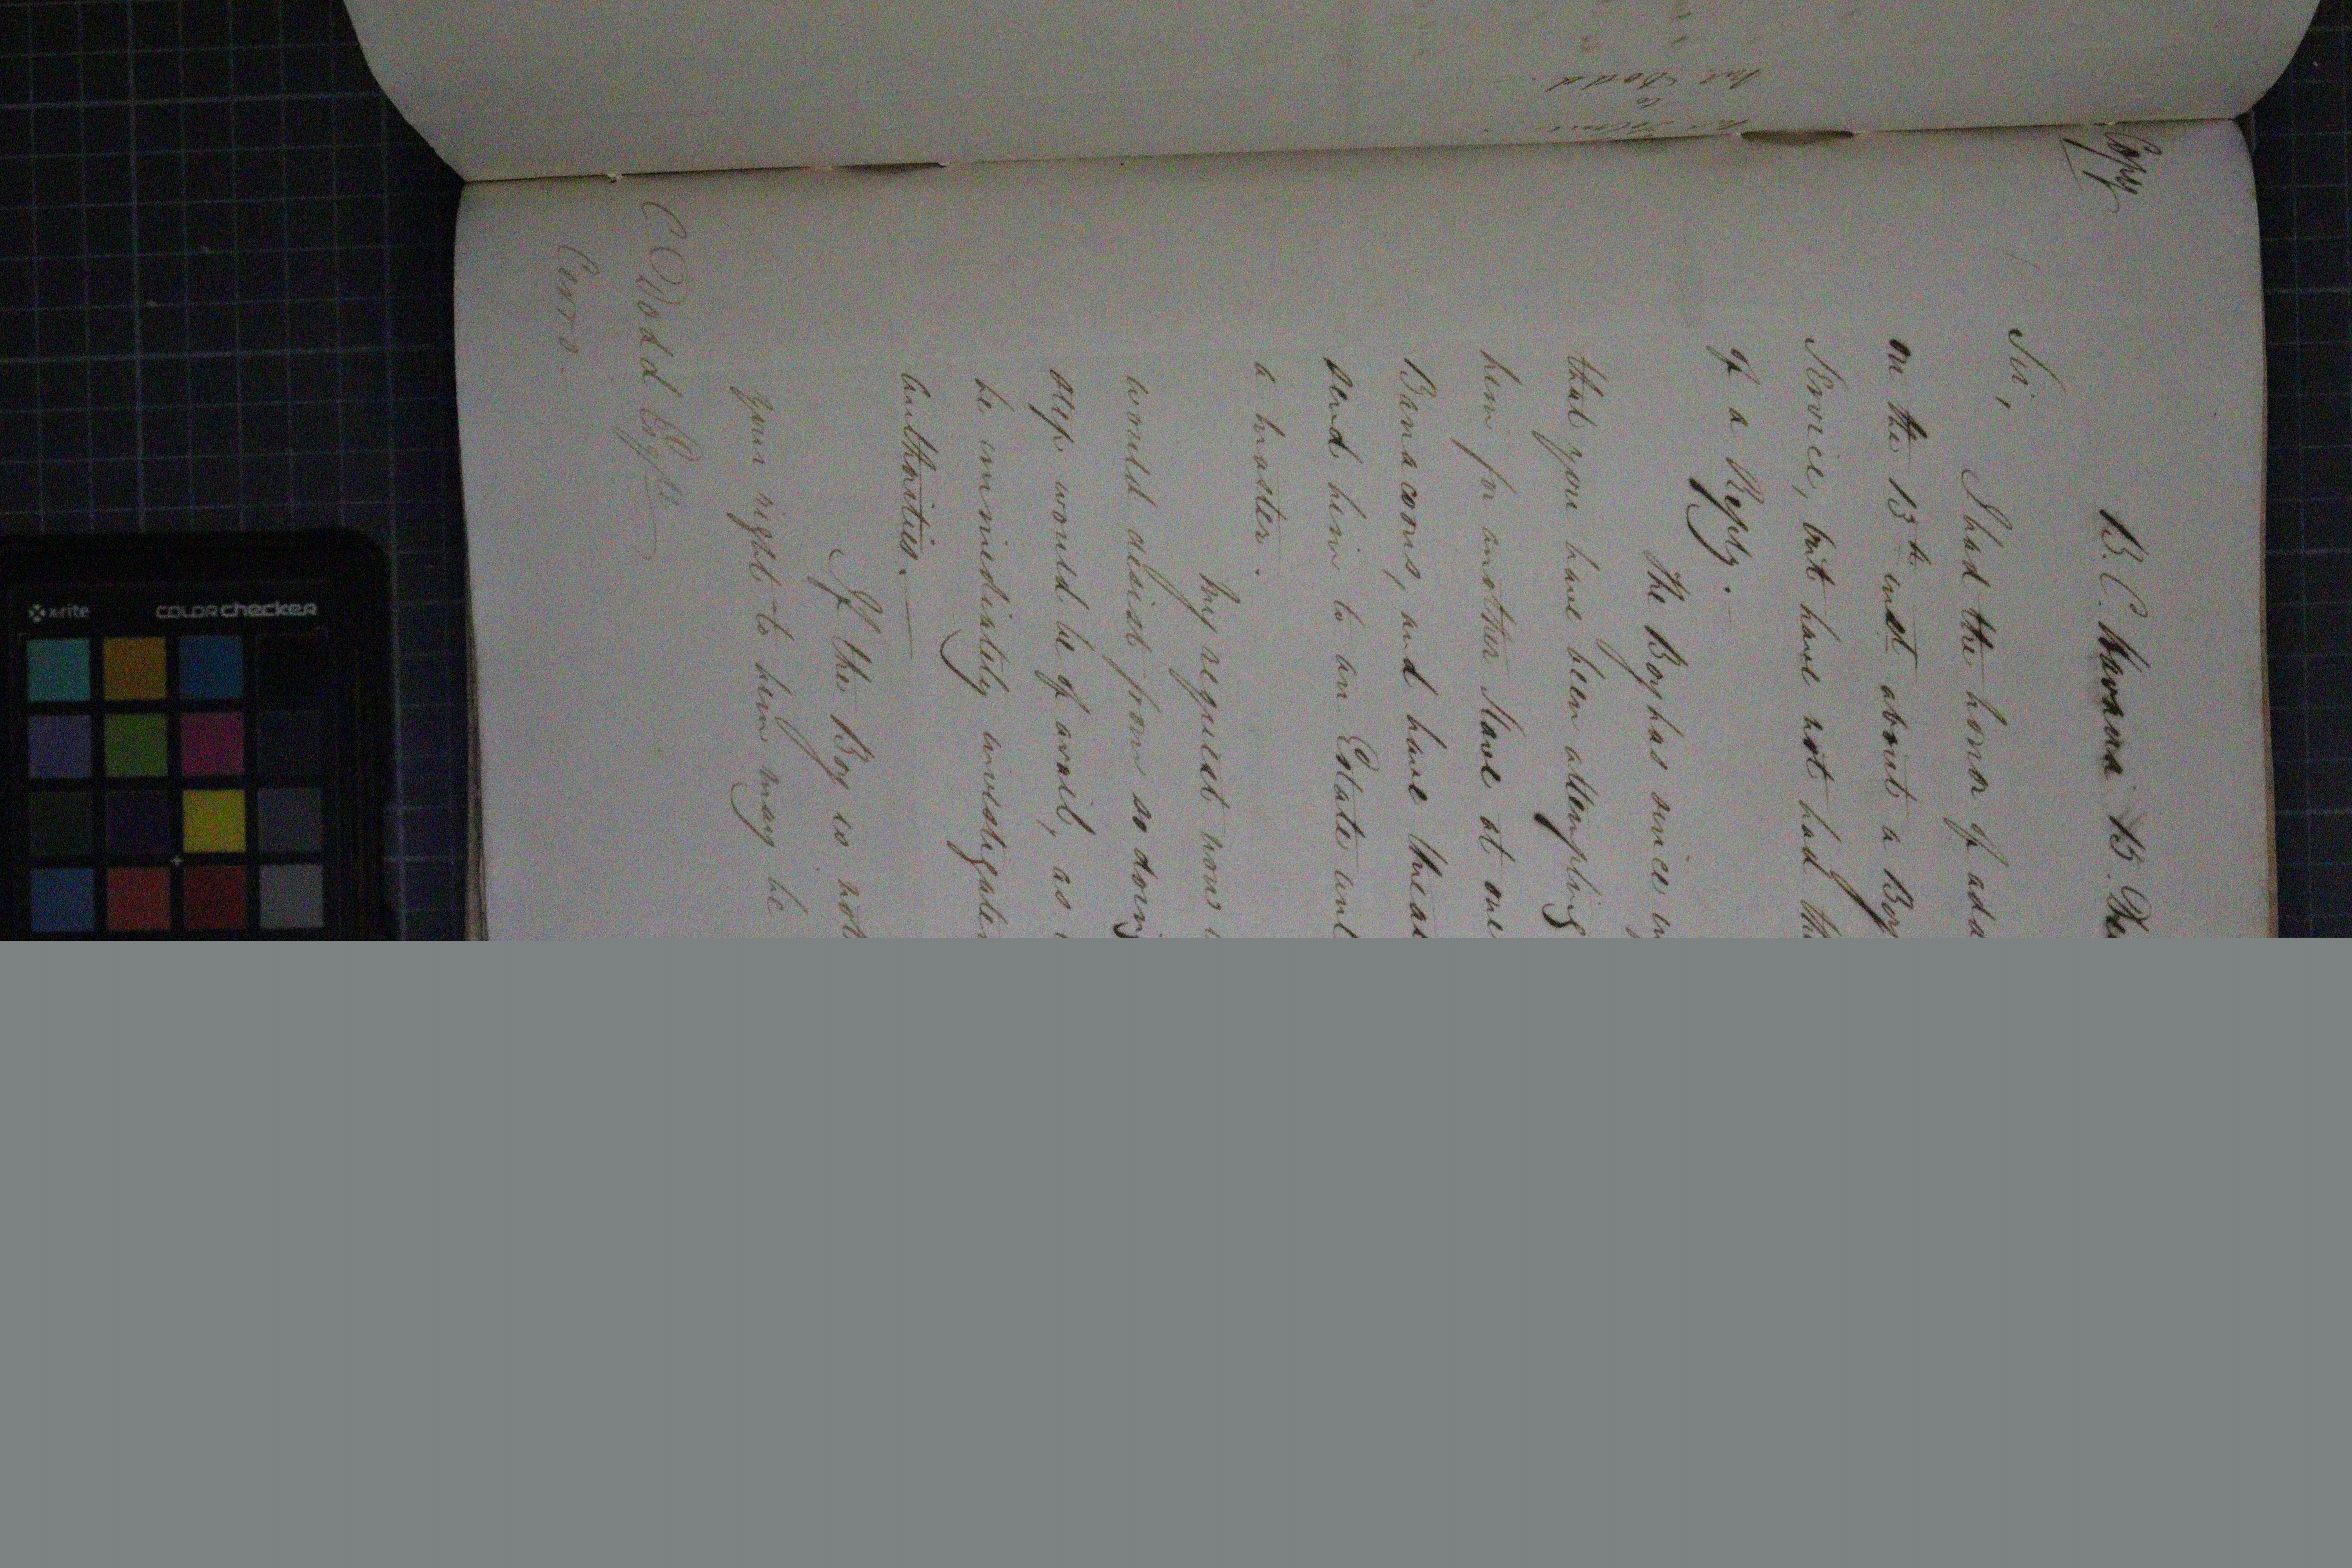 Copy
B. C. Havana 15. De
Sir,
I had the honor of ada
on the 13th inst about a Boy
Service, but have not had th
of a Reply.
The Boy has since in
that you have been attempting
him for another Slave at one
Barracoons, and have threa
send him to an Estate und
a master.
My request now i
would desist from so doing
step would be of avail, as
be immediately investigate
authorities.
If the Boy is not
your right to him may be
C Dodd Esqre
Cerro.
Mr Dodd
x-rite colorchecker